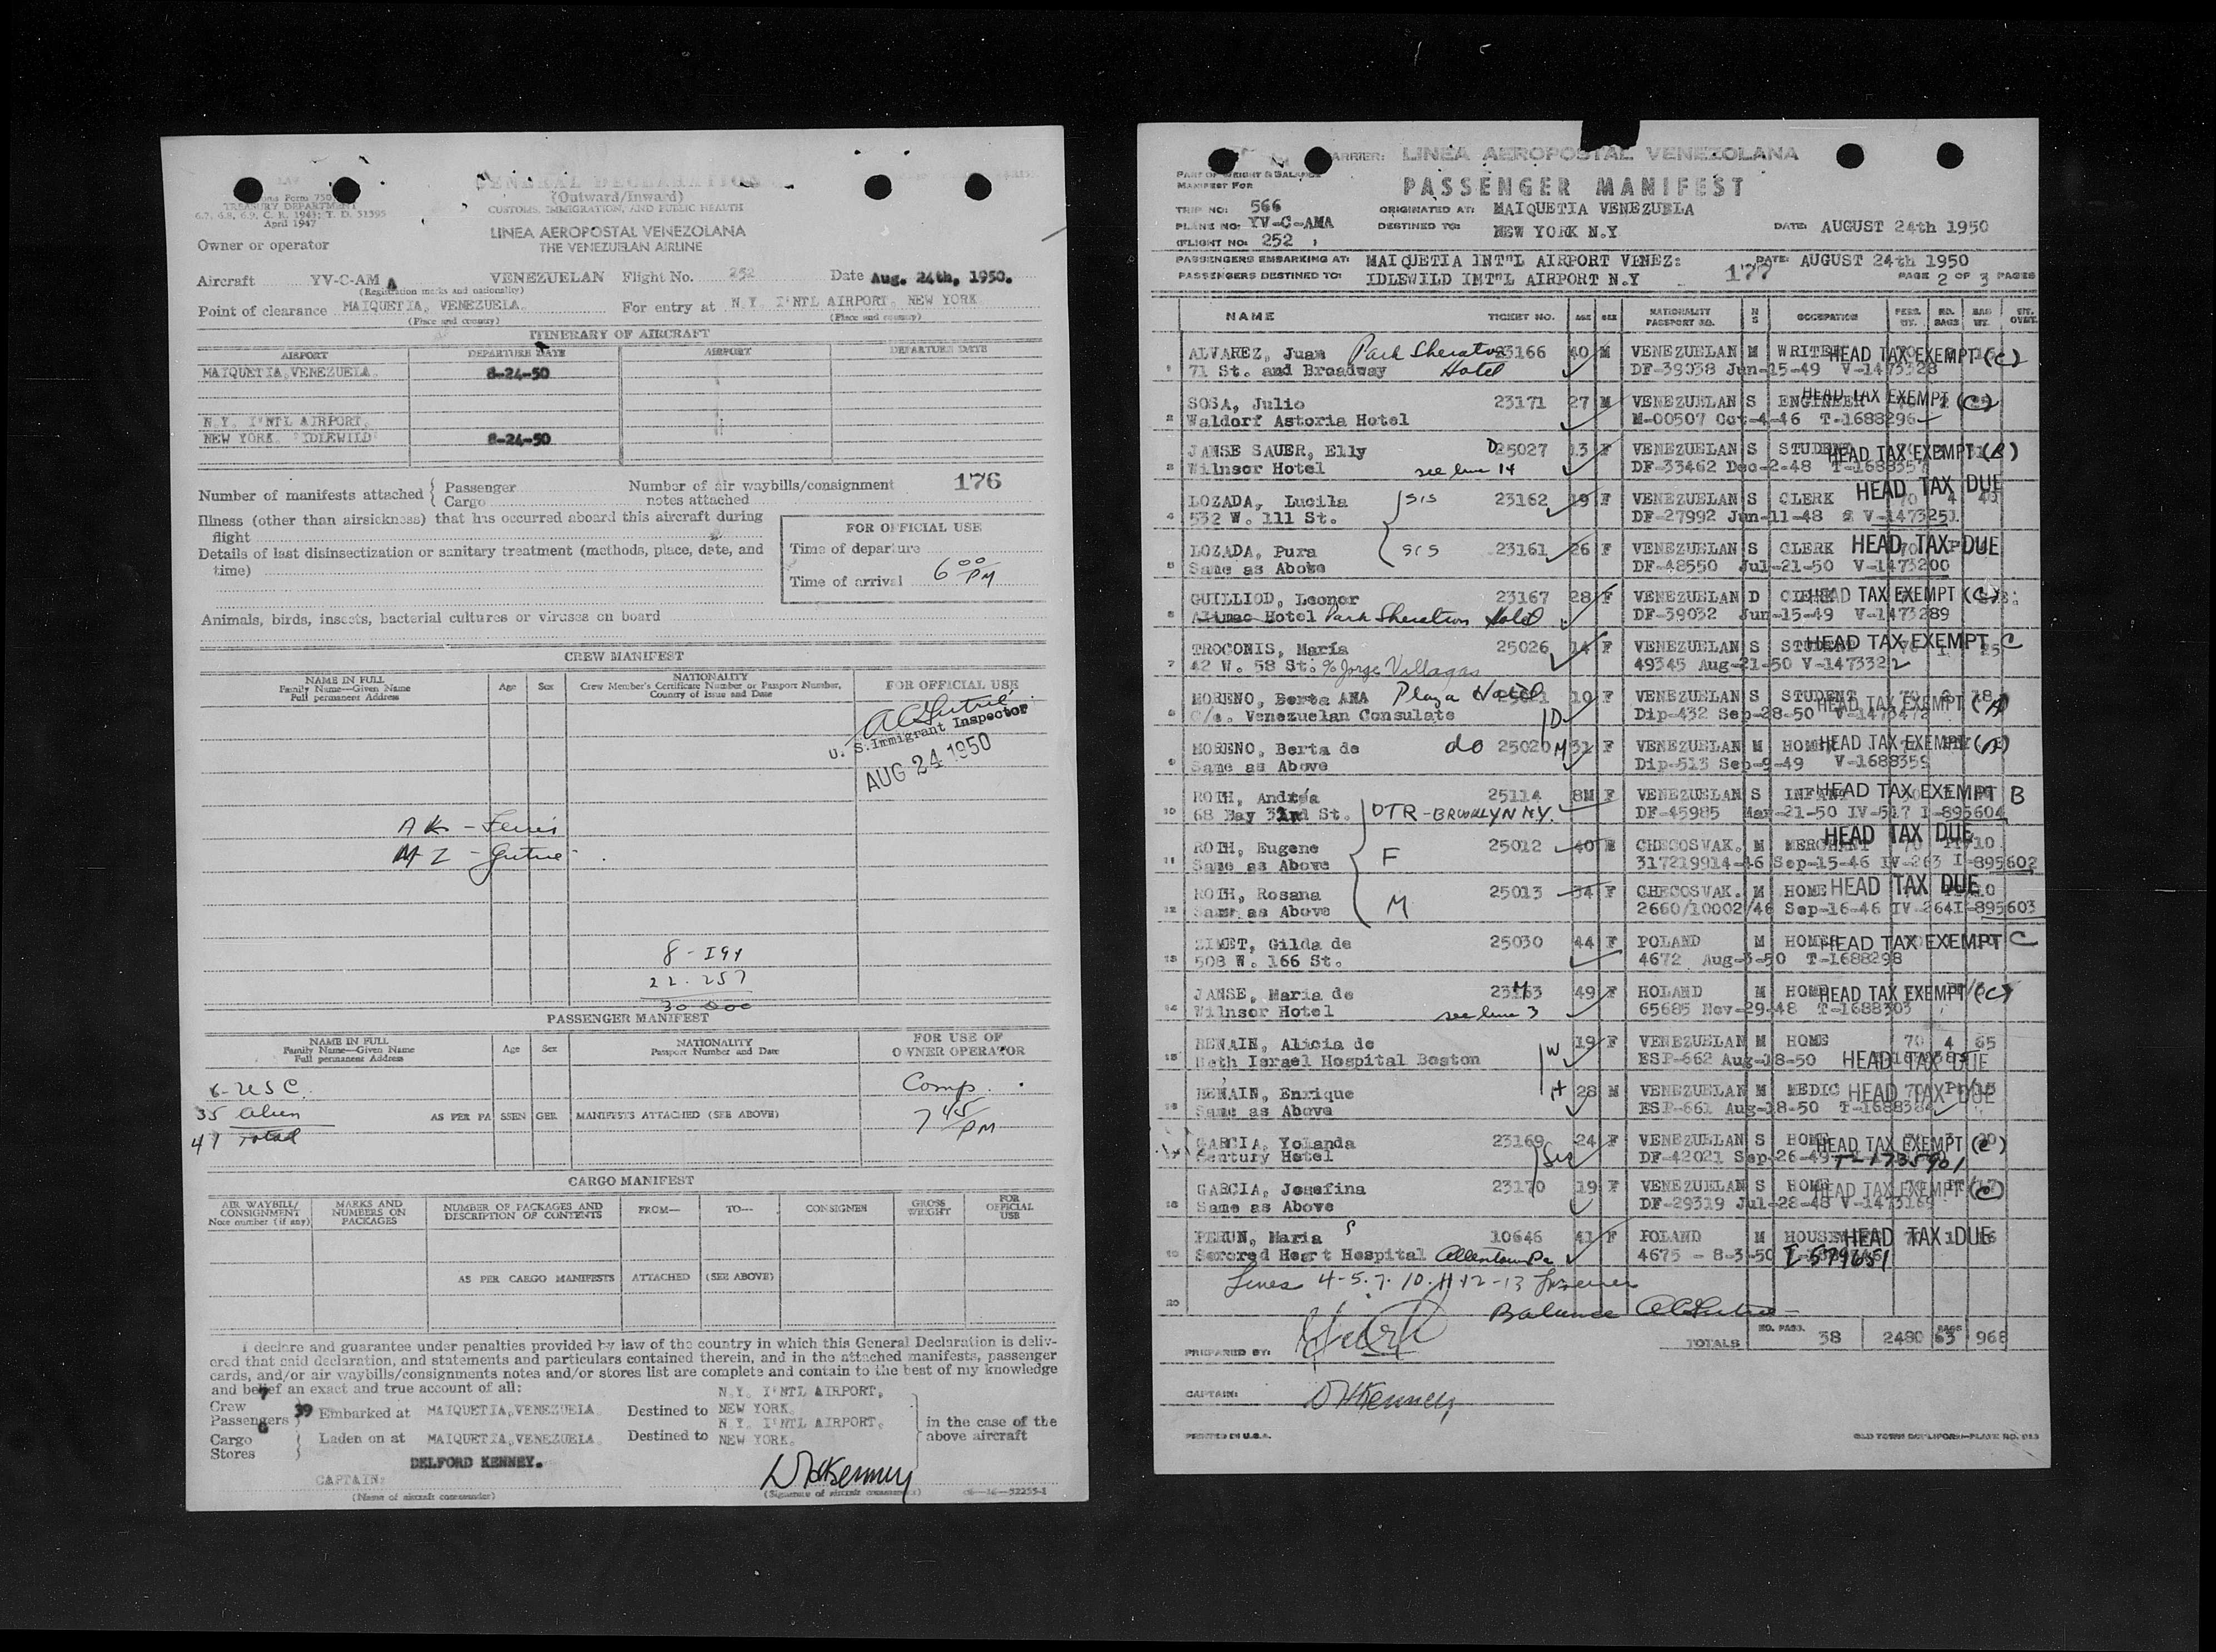 GENERAL DECLARATION
(Outward/Inward)
CUSTOMS, IMMIGRATION, AND PUBLIC HEALTH
Form 750
TREASURY DEPARTMENT
6.7, 6.8, 6.9, C. R. 1943; T. D. 51595
April 1947
LINEA AEROPOSTAL VENEZOLANA
THE VENEZUELAN AIRLINE
Owner or operator
Aircraft YV-C-AM A VENEZUELAN Flight No. 252 Date Aug. 24th, 1950.
(Registration marks and nationality)
Point of clearance MAIQUETIA, VENEZUELA. For entry at N.Y. I'NTL AIRPORT, NEW YORK
(Place and country) (Place and country)
ITINERARY OF AIRCRAFT
AIRPORT DEPARTURE DATE AIRPORT DEPARTURE DATE
MAIQUETIA, VENEZUELA. 8-24-50
N.Y. I'NTL AIRPORT.
NEW YORK. "IDLEWILD" 8-24-50
176
Number of manifests attached { Passenger Number of air waybills/consignment
Cargo notes attached
Illness (other than airsickness) that has occurred aboard this aircraft during
flight
Details of last disinsectization or sanitary treatment (methods, place, date, and
time)
FOR OFFICIAL USE
Time of departure
Time of arrival 6 00 PM
Animals, birds, insects, bacterial cultures or viruses on board
CREW MANIFEST
NAME IN FULL
Family Name—Given Name
Full permanent Address
Age Sex
NATIONALITY
Crew Member's Certificate Number or Passport Number,
Country of Issue and Date
FOR OFFICIAL USE
U. S. Immigrant Inspector
AUG 24 1950
8 - I94
22. 257
PASSENGER MANIFEST
NAME IN FULL
Family Name—Given Name
Full permanent Address
Age Sex
NATIONALITY
Passport Number and Date
FOR USE OF
OWNER OPERATOR
6-USC.
35 alien
41 Total
AS PER PA SSEN GER MANIFESTS ATTACHED (SEE ABOVE)
Comp.
7 45 PM
CARGO MANIFEST
AIR WAYBILL/
CONSIGNMENT
Note number (if any)
MARKS AND
NUMBERS ON
PACKAGES
NUMBER OF PACKAGES AND
DESCRIPTION OF CONTENTS
FROM— TO— CONSIGNEE
GROSS
WEIGHT
FOR
OFFICIAL
USE
AS PER CARGO MANIFESTS ATTACHED (SEE ABOVE)
I declare and guarantee under penalties provided by law of the country in which this General Declaration is deliv-
ered that said declaration, and statements and particulars contained therein, and in the attached manifests, passenger
cards, and/or air waybills/consignments notes and/or stores list are complete and contain to the best of my knowledge
and belief an exact and true account of all:
Crew 7
Passengers 39 Embarked at MAIQUETIA, VENEZUELA. Destined to N.Y. I'NTL AIRPORT, NEW YORK.
Cargo 6
Stores Laden on at MAIQUETIA, VENEZUELA. Destined to N.Y. I'NTL AIRPORT, NEW YORK.
in the case of the
above aircraft
DELFORD KENNEY.
CAPTAIN:
(Name of aircraft commander) (Signature of aircraft commander) 16—52255-1
CARRIER: LINEA AEROPOSTAL VENEZOLANA
PART OF WEIGHT & BALANCE
MANIFEST FOR
PASSENGER MANIFEST
TRIP NO: 566 ORIGINATED AT: MAIQUETIA VENEZUELA
PLANE NO: YV-C-AMA DESTINED TO: NEW YORK N.Y DATE: AUGUST 24th 1950
FLIGHT NO: 252
PASSENGERS EMBARKING AT: MAIQUETIA INT"L AIRPORT VENEZ: DATE: AUGUST 24th 1950
PASSENGERS DESTINED TO: IDLEWILD INT"L AIRPORT N.Y 177 PAGE 2 OF 3 PAGES
NAME TICKET NO. AGE SEX NATIONALITY PASSPORT NO. M S OCCUPATION PERS. WT. NO. BAGS BAG WT.
1 ALVAREZ, Juan Park Sheraton 23166 40 M VENEZUELAN M WRITER HEAD TAX EXEMPT (C)
71 St. and Broadway Hotel DF-39038 Jun-15-49 V-1473328
2 SOSA, Julio 23171 27 M VENEZUELAN S ENGINEER HEAD TAX EXEMPT (C)
Waldorf Astoria Hotel M-00507 Oct-4-46 T-1688296
3 JANSE SAUER, Elly D 25027 13 F VENEZUELAN S STUDENT HEAD TAX EXEMPT (B)
Wilnsor Hotel see line 14 DF-33462 Dec-2-48 T-1688357
4 LOZADA, Lucila SIS 23162 19 F VENEZUELAN S CLERK HEAD TAX DUE
532 W. 111 St. DF-27992 Jun-11-48 V-1473251
5 LOZADA, Pura SIS 23161 26 F VENEZUELAN S CLERK HEAD TAX DUE
Same as Above DF-48550 Jul-21-50 V-1473200
6 GUILLIOD, Leonor 23167 28 F VENEZUELAN D CLERK HEAD TAX EXEMPT (C)
Alimac Hotel Park Sheraton Hotel DF-39032 Jun-15-49 V-1473289
7 TROCONIS, María 25026 14 F VENEZUELAN S STUDENT HEAD TAX EXEMPT C
42 W. 58 St: % Jorge Villagas 49345 Aug-21-50 V-1473322
8 MORENO, Berta ANA Plaza Hotel 10 F VENEZUELAN S STUDENT HEAD TAX EXEMPT (A)
C/o. Venezuelan Consulate D Dip-432 Sep-28-50 V-1473472
9 MORENO, Berta de do 25020 M 31 F VENEZUELAN M HOME HEAD TAX EXEMPT (A)
Same as Above Dip-513 Sep-9-49 V-1688359
10 ROTH, Andréa 25114 8M F VENEZUELAN S INFANT HEAD TAX EXEMPT B
68 Bay 32nd St. DTR - BROOKLYN N.Y. DF-45985 Mar-21-50 IV-517 I-895604
11 ROTH, Eugene F 25012 40 M CHECOSVAK. M MERCHANT HEAD TAX DUE
Same as Above 317219914-46 Sep-15-46 IV-263 I-895602
12 ROTH, Rosana M 25013 34 F CHECOSVAK. M HOME HEAD TAX DUE
Same as Above 2660/10002/46 Sep-16-46 IV-264 I-895603
13 ZIMET, Gilda de 25030 44 F POLAND M HOME HEAD TAX EXEMPT C
508 W. 166 St. 4672 Aug-3-50 T-1688298
14 JANSE, Maria de M 23163 49 F HOLAND M HOME HEAD TAX EXEMPT (C)
Wilnsor Hotel see line 3 65685 Nov-29-48 T-1688303
15 BENAIN, Alicia de W 19 F VENEZUELAN M HOME 70 4 65
Beth Israel Hospital Boston ESP-662 Aug-18-50 HEAD TAX DUE
16 BENAIN, Enrique H 28 M VENEZUELAN M MEDIC HEAD TAX DUE
Same as Above ESP-661 Aug-18-50 T-1688384
17 GARCIA, Yolanda 23169 24 F VENEZUELAN S HOME HEAD TAX EXEMPT (C)
Century Hotel Sis DF-42021 Sep-26-49 T-1735901
18 GARCIA, Josefina 23170 19 F VENEZUELAN S HOME HEAD TAX EXEMPT (C)
Same as Above DF-29319 Jul-28-48 V-1473169
19 PERUN, Maria S 10646 41 F POLAND M HOUSEW HEAD TAX DUE
Sacored Heart Hospital Allentown Pa 4675 - 8-3-50 I-579651
Lines 4-5-7-10-11-12-13
20 Balance
TOTALS NO. PASS. 38 2480 BAGS 63 968
PREPARED BY:
CAPTAIN:
PRINTED IN U.S.A.